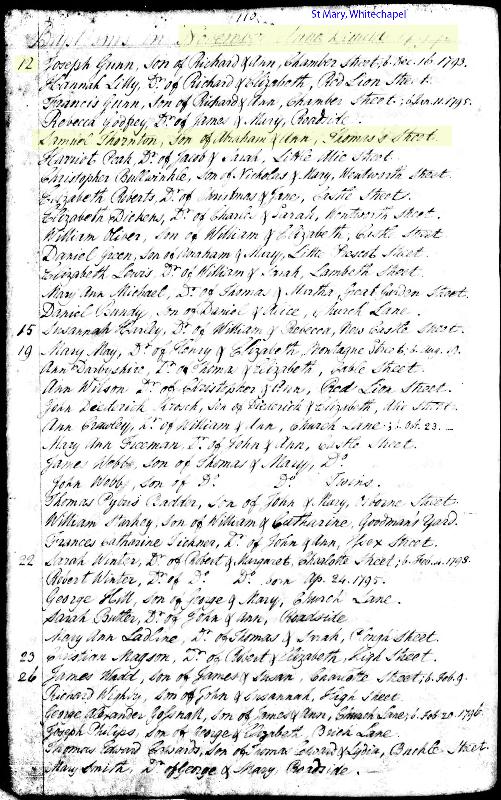 St Mary, Whitechapel
110
Baptisms in November
12 Joseph Gunn, Son of Richard & Ann, Chamber Street, b. Dec. 16. 1793.
Hannah Lilly, Dr. of Richard & Elizabeth, Red Lion Street.
Francis Gunn, Son of Richard & Ann, Chamber Street; b. 11. 1795.
Rebecca Godfrey, Dr. of James & Mary, Roadside.
Samuel Thornton, Son of Abraham & Ann, Thomas's Street.
Harriet Peak, Dr. of Jacob & Sarah, Little Alie Street.
Christopher Bullwinkle, Son of Nicholas & Mary, Wentworth Street.
Elizabeth Roberts, Dr. of Christmas & Jane, Castle Street.
Elizabeth Dickens, Dr. of Charles & Sarah, Wentworth Street.
William Oliver, Son of William & Elizabeth, Castle Street
Daniel Green, Son of Abraham & Mary, Little Prescot Street.
Elizabeth Lewis, Dr. of William & Sarah, Lambeth Street.
Mary Ann Michael, Dr. of Thomas & Martha, Great Garden Street.
Daniel Bundy, Son of Daniel & Alice, Church Lane.
15 Susannah Hanley, Dr. of William & Rebecca, New Castle Street.
19 Mary May, Dr. of Henry & Elizabeth, Montague Street; b. Aug. 9.
Ann Darbyshire, Dr. of Thomas & Elizabeth, Street.
Ann Wilson Dr. of Christopher & Ann, Red Lion Street.
John Deiderick Krosch, Son of Diederick & Elizabeth, Alie Street.
Ann Crawley, Dr. of William & Ann, Church Lane; b. Oct. 23.
Mary Ann Freeman, Dr. of John & Ann, Castle Street.
James Webb, Son of Thomas & Mary, Do.
John Webb, Son of Do. Do. Twins.
Thomas Pybus Badder, Son of John & Mary, Osborne Street.
William Starkey, Son of William & Catharine, Goodmans Yard.
Frances Catharine Tichner, Dr. of John & Ann, Street.
22 Sarah Winter, Dr. of Robert & Margaret, Charlotte Street; b. Feb. 4. 1793.
Robert Winter, Dr. of Do. Do. born Ap. 24. 1795.
George Hill, Son of George & Mary, Church Lane.
Sarah Butter, Dr. of John & Ann, Roadside
Mary Ann Ladline, Dr. of Thomas & Sarah, Plough Street.
23 Christian Magson, Dr. of Robert & Elizabeth, High Street.
26 James Wadd, Son of James & Susan, Charlotte Street; b. Feb. 9.
Richard Wighty, Son of John & Susannah, High Street
George Alexander Gosnall, Son of James & Ann, Church Lane; b. Feb 20. 1796
Joseph Philips, Son of George & Elizabeth, Brick Lane.
Thomas Edward Edwards, Son of Thomas Edward & Lydia, Buckle Street.
Mary Smith, Dr. of George & Mary, Roadside.